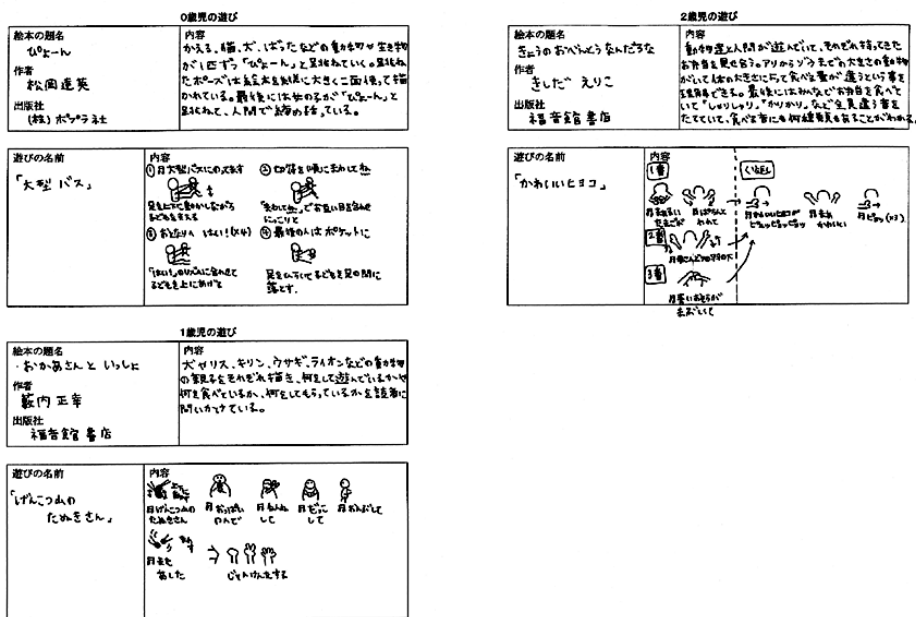 0歳児の遊び
絵本の題名
ぴょーん
作者
松岡達英
出版社
(株)ポプラ社
内容
かえる、猫、犬、ばったなどの動物や生き物
が1匹ずつ「ぴょーん」と跳ねていく。跳ね
たポーズは絵本を縦に大きく二面使って描
かれている。最後には女の子が「ぴょーん」と
跳ねて、人間で絵の話している。
遊びの名前
「大型バス」
内容
①月大型バスにのってます
②切符を順にまわしてね
足を上下に動かしながら
子どもをささえる
「まわしてね」でお互い目を合わせ
にっこりと
③おとなりへ はい!(×4)
④最後の人はポケットに
「はい!」のリズムに合わせて
子どもを上にあげる
足をひらいて子どもを足の間に
落とす。
1歳児の遊び
絵本の題名
おかあさんと いっしょに
作者
薮内正幸
出版社
福音館書店
内容
犬やリス、キリン、ウサギ、ライオンなどの動物
の親子をそれぞれ描き、何をして遊んでいるかや
何を食べているか、何をしてもらっているかを読者に
問いかけている。
遊びの名前
「げんこつ山の
たぬきさん」
内容
月げんこつ山の
たぬきさん
月おっぱい
のんで
月ねんね
して
月だっこ
して
月おんぶして
月また
あした
じゃんけんをする
2歳児の遊び
絵本の題名
きょうのおべんとうなんだろな
作者
きしだ えりこ
出版社
福音館書店
内容
動物達と人間が遊んでいて、それぞれ持ってきた
お弁当を見せ合う。アリからゾウまでの大きさの動物
がいて体の大きさによって食べる量が違うという事を
理解できる。最後にはみんなでお弁当を食べて
いて「しゃりしゃり」「かりかり」など全員違う音を
たてていて、食べる音にも何種類もあることがわかる。
遊びの名前
「かわいいヒヨコ」
内容
1番
くりかえし
月まあるい
たまごが
月ぱちんと
われて
月かわいいヒヨコが
ピヨッピヨッピヨッ
月まあ
かわいい
月ピヨッ(×3)
2番
3番
月青いおそらが
まぶしくて